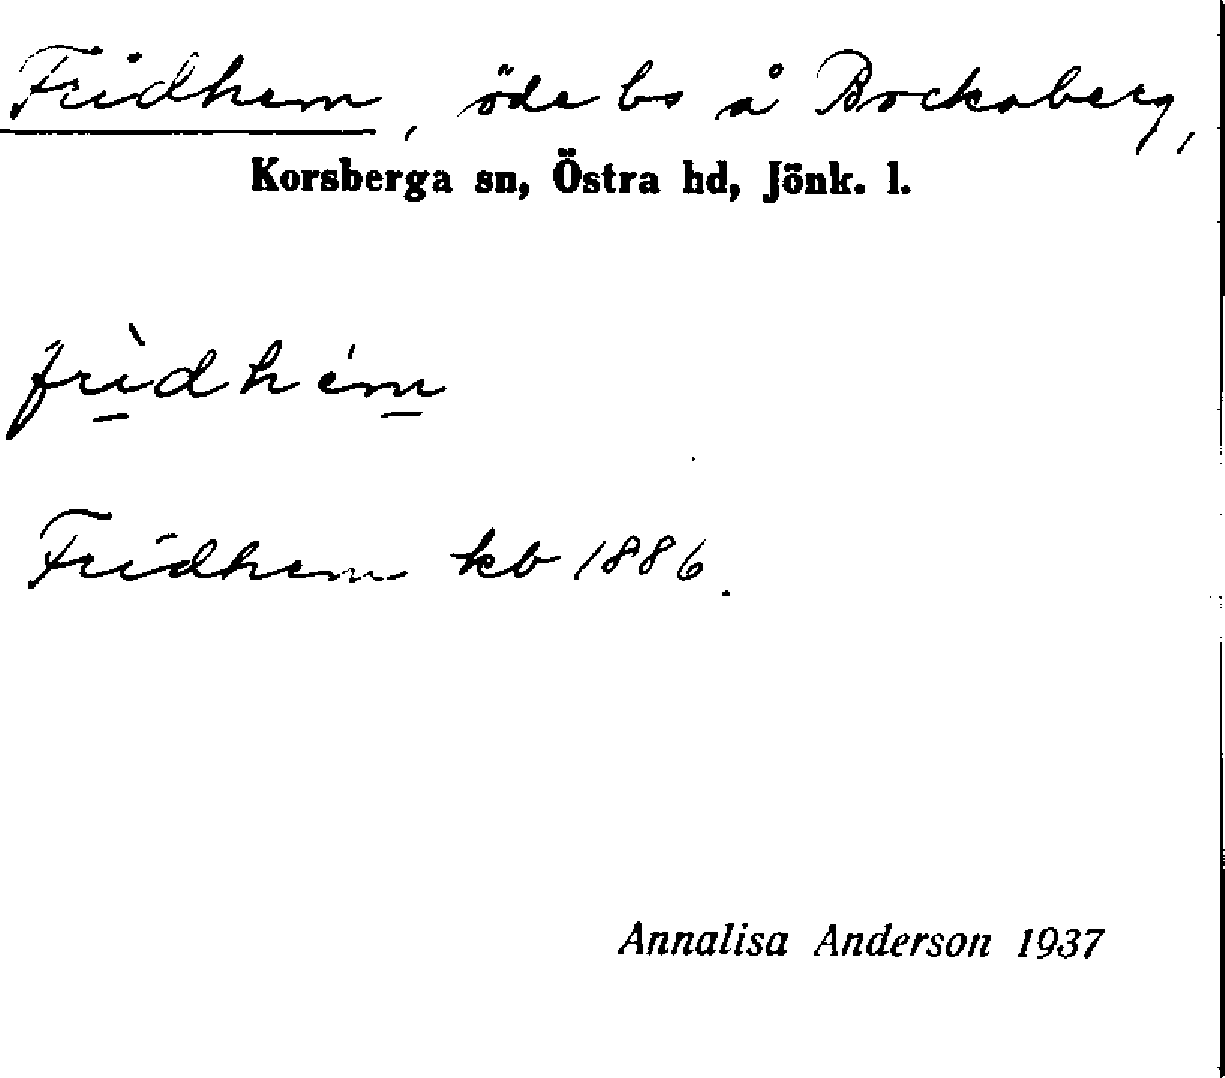 Fridhem, öde bs å Bocksberg,
Korsberga sn, Östra hd, Jönk. l.
frìdhém
Fridhem kb 1886.
Annalisa Anderson 1937